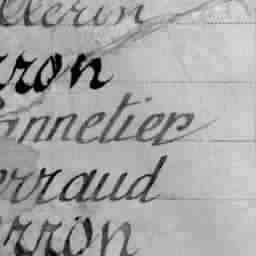 llerin
rron
onnetier
erraud
erron